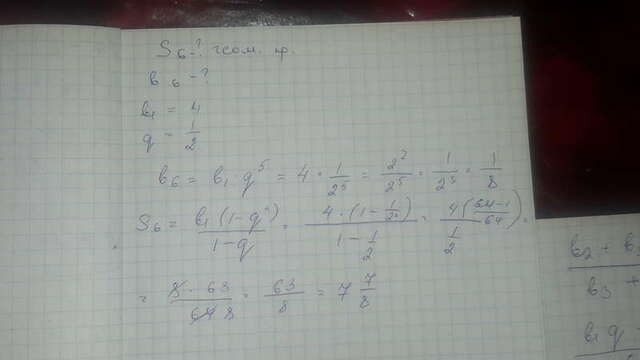 S₆ - ? геом. пр.
b₆ - ?
b₁ = 4
q = 1/2
b₆ = b₁ · q⁵ = 4 · 1/2⁵ = 2²/2⁵ = 1/2³ = 1/8
S₆ = b₁(1-q⁶)/1-q = 4·(1-1/2⁶)/1-1/2 = 4(64-1/64)/1/2 =
= 8·63/64 8 = 63/8 = 7 7/8
b₂ + b
b₃ +
b₁q